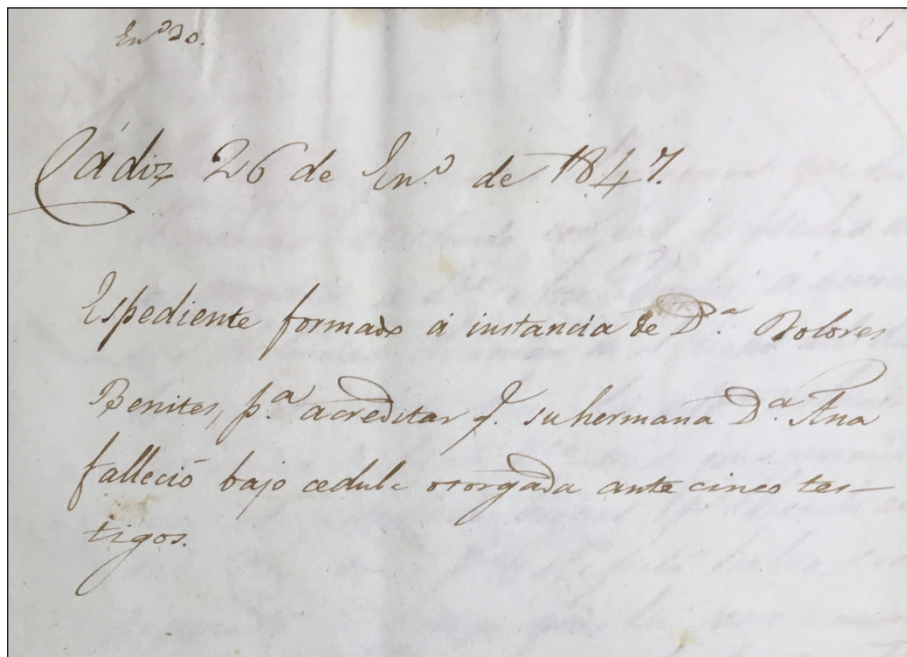 En.º 30.
21
Cádiz 26 de En.º de 1847.
Espediente formado á instancia de D.ª Dolores
Benites, p.ª acreditar q. su hermana D.ª Ana
falleció bajo cedula otorgada ante cinco tes-
tigos.